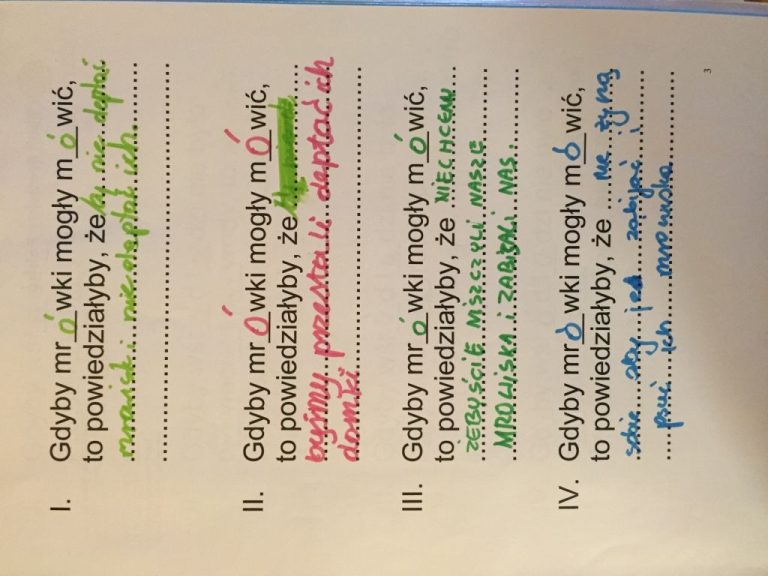 I. Gdyby mrówki mogły mówić,
to powiedziałyby, że by nie deptać
mrowisk i nie deptać ich.
II. Gdyby mrówki mogły mówić,
to powiedziałyby, że
byśmy przestali deptać ich
domki
III. Gdyby mrówki mogły mówić,
to powiedziałyby, że NIECHCEMY
ŻEBYŚCIE NISZCZYLI NASZE
MROWISKA I ZABIJALI NAS.
IV. Gdyby mrówki mogły mówić,
to powiedziałyby, że
sobie aby zabijać i
psuć ich mrowiska
3